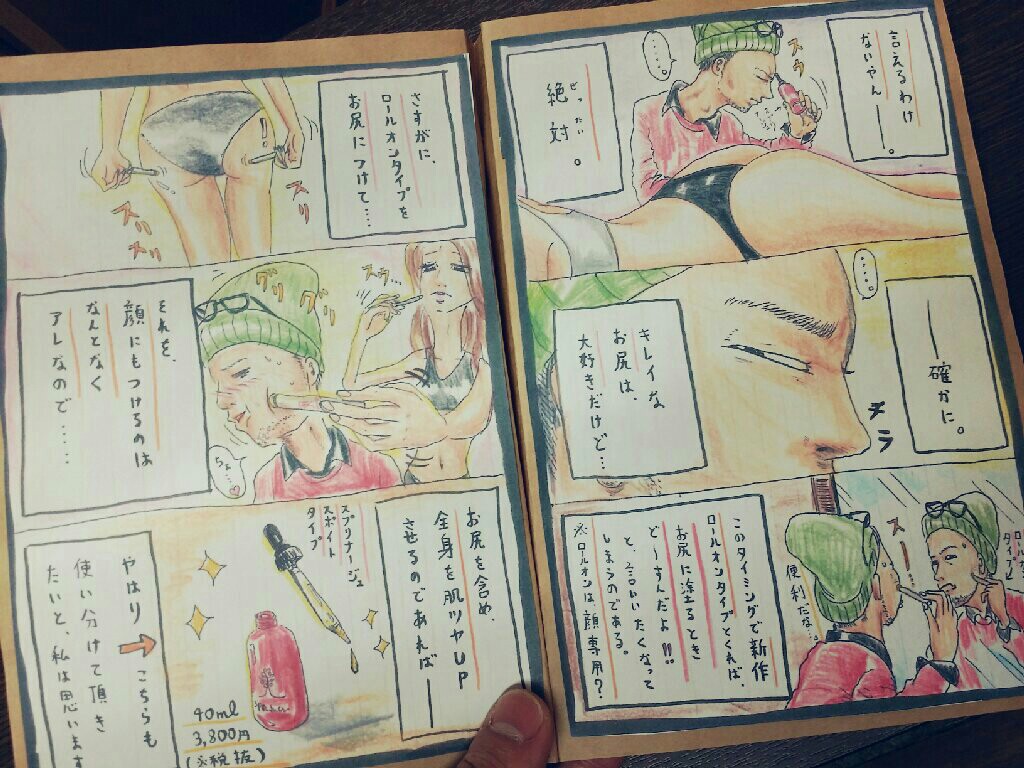 言えるわけ
ないやん
ー。
スゥ
・・・・。
ぜったい
絶対。
・・・・。
ー確かに。
チラ
キレイな
お尻は、
大好きだけど…
スー
便利だな…
このタイミングで新作
ロールオンタイプとくれば、
お尻に塗るとき
どーすんだよ!!
と、言いたくなって
しまうのである。
※ロールオンは、顔専用?。
さすがに、
ロールオンタイプを
お尻につけて……
スリ
スリ
スリ
!
スゥ…
グリ
グリ
グリ
ちょ…
それを、
顔にもつけるのは
なんとなく
アレなので……
お尻を含め、
全身を肌ツヤUP
させるのであれば
ー
スプリナージュ
スポイト
タイプ
40ml
3,800円
(※税抜)
やはり→こちらも
使い分けて頂き
たいと、私は思います